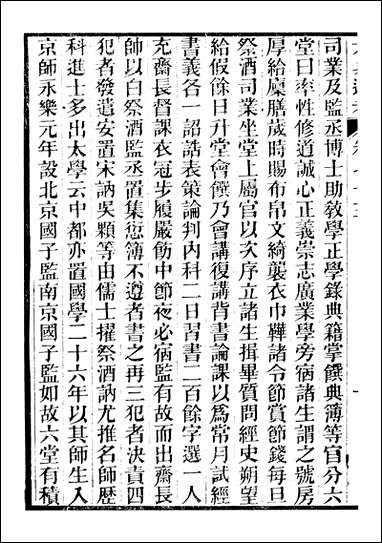 司業及監丞博士助教學正學錄典籍掌饌典簿等官分六
堂曰率性修道誠心正義崇志廣業學旁宿諸生謂之號房
厚給廩膳歲時賜布帛文綺襲衣巾鞾諸令節賞節錢每旦
祭酒司業坐堂上屬官以次序立諸生揖畢質問經史朔望
給假餘日升堂會饌乃會講復講背書論課以爲常月試經
書義各一詔誥表策論判内科二日習書二百餘字選一人
充齋長督課衣冠步履嚴飭中節夜必宿監有故而出齋長
帥以白祭酒監丞置集愆簿不遵者書之再三犯者決責四
犯者發遣安置宋訥吳顒等由儒士擢祭酒訥尤推名師歷
科進士多出太學云中都亦置國學二十六年以其師生入
京師永樂元年設北京國子監南京國子監如故六堂有積